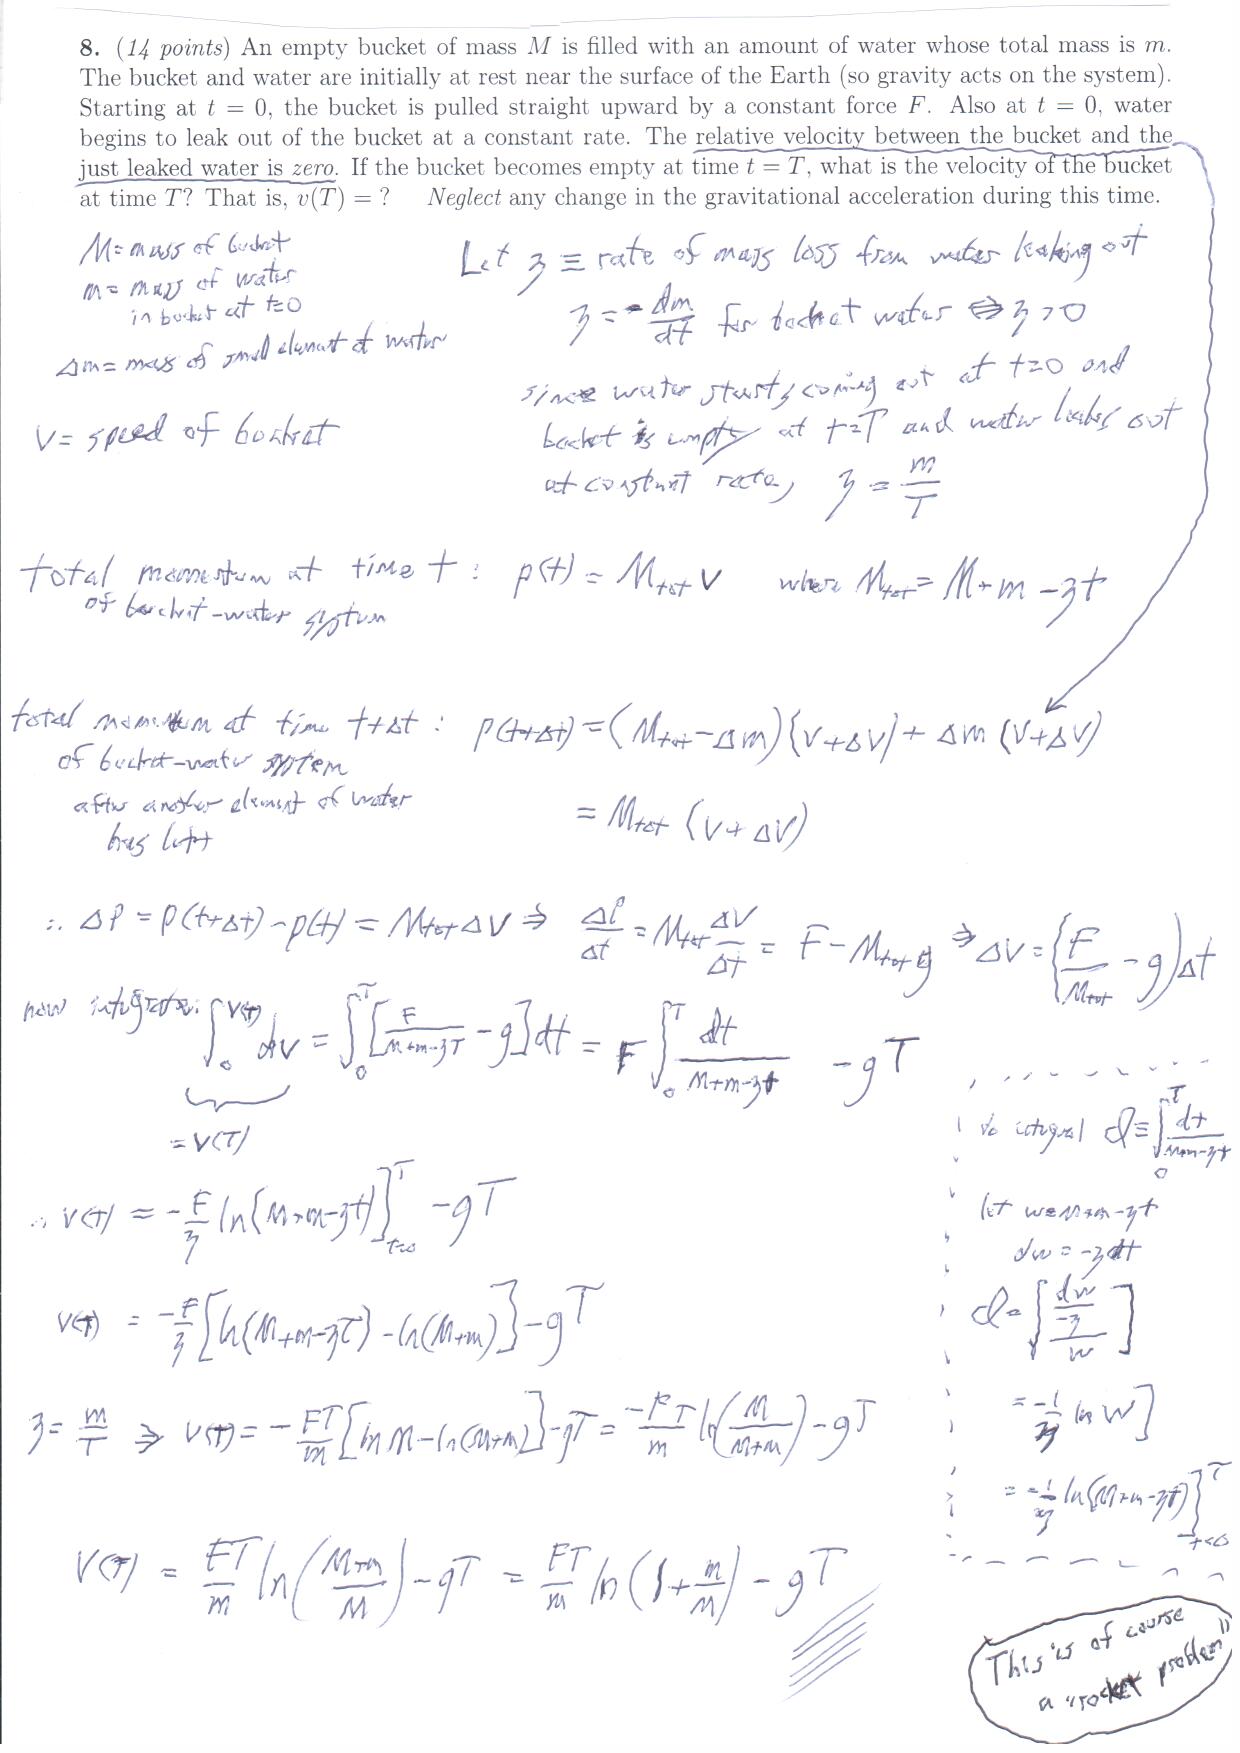 8. (14 points) An empty bucket of mass M is filled with an amount of water whose total mass is m.
The bucket and water are initially at rest near the surface of the Earth (so gravity acts on the system).
Starting at t = 0, the bucket is pulled straight upward by a constant force F. Also at t = 0, water
begins to leak out of the bucket at a constant rate. The relative velocity between the bucket and the
just leaked water is zero. If the bucket becomes empty at time t = T, what is the velocity of the bucket
at time T? That is, v(T) = ? Neglect any change in the gravitational acceleration during this time.
M = mass of bucket
m = mass of water
in bucket at t=0
Δm = mass of small element of water
V = speed of bucket
Let z ≡ rate of mass loss from water leaking out
z = -dm/dt for bucket water ⇔ z > 0
since water starts coming out at t=0 and
bucket is empty at t=T and water leaks out
at constant rate, z = m/T
total momentum at time t : p(t) = M_tot V where M_tot = M+m-zt
of bucket-water system
total momentum at time t+Δt : p(t+Δt) = (M_tot-Δm)(V+ΔV) + Δm(V+ΔV)
of bucket-water system
after another element of water
has left
= M_tot (V+ΔV)
∴ ΔP = p(t+Δt) - p(t) = M_tot ΔV ⇒ ΔP/Δt = M_tot ΔV/Δt = F - M_tot g ⇒ ΔV = (F/M_tot - g)Δt
now integrate: ∫_0^V(T) dV = ∫_0^T [F/(M+m-zT) - g]dt = F ∫_0^T dt/(M+m-zt) - gT
= V(T)
∴ V(T) = -F/z ln(M+m-zt)]_t=0^T - gT
V(T) = -F/z [ln(M+m-zT) - ln(M+m)] - gT
z = m/T ⇒ V(T) = -FT/m [ln M - ln(M+m)] - gT = -FT/m ln(M/(M+m)) - gT
V(T) = FT/m ln((M+m)/M) - gT = FT/m ln(1+m/M) - gT
do integral I ≡ ∫_0^T dt/(M+m-zt)
let w = M+m-zt
dw = -z dt
I = ∫ (dw/-z)/w ]
= -1/z ln w]
= -1/z ln(M+m-zt)]_t=0^T
This is of course
a "rocket problem"